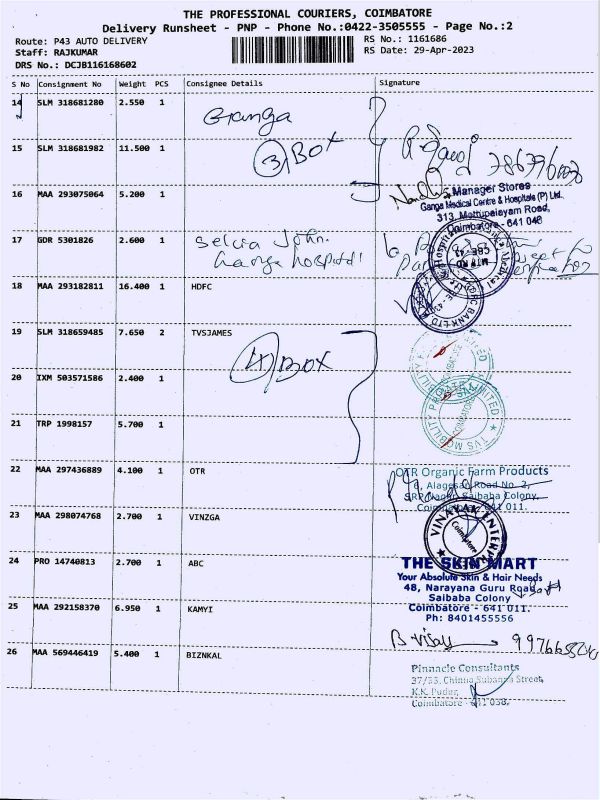 THE PROFESSIONAL COURIERS, COIMBATORE
Delivery Runsheet - PNP - Phone No.:0422-3505555 - Page No.:2
Route: P43 AUTO DELIVERY
RS No.: 1161686
Staff: RAJKUMAR
RS Date: 29-Apr-2023
DRS No.: DCJB116168602
S No Consignment No Weight PCS Consignee Details Signature
14 SLM 318681280 2.550 1 Ganga
15 SLM 318681982 11.500 1 3 Box
16 MAA 293075064 5.200 1
Manager Stores
Ganga Medical Centre & Hospitals (P) Ltd.
313, Mettupalayam Road,
Coimbatore - 641 043
17 GDR 5301826 2.600 1 Selva John.
Ganga hospital
18 MAA 293182811 16.400 1 HDFC
19 SLM 318659485 7.650 2 TVSJAMES
4 Box
20 IXM 503571586 2.400 1
21 TRP 1998157 5.700 1
TVS MOBILITY PRIVATE LIMITED
22 MAA 297436889 4.100 1 OTR
OTR Organic Farm Products
6, Alagesan Road No. 2,
SRP Nagar, Saibaba Colony,
Coimbatore - 641 011.
23 MAA 298074768 2.700 1 VINZGA
Coimbatore
24 PRO 14740813 2.700 1 ABC
THE SKIN MART
Your Absolute Skin & Hair Needs
48, Narayana Guru Road,
Saibaba Colony
Coimbatore - 641 011.
Ph: 8401455556
25 MAA 292158370 6.950 1 KAMYI
B Vijay
26 MAA 569446419 5.400 1 BIZNKAL
Pinnacle Consultants
Street,
K.K. Pudur,
Coimbatore - 641 038.